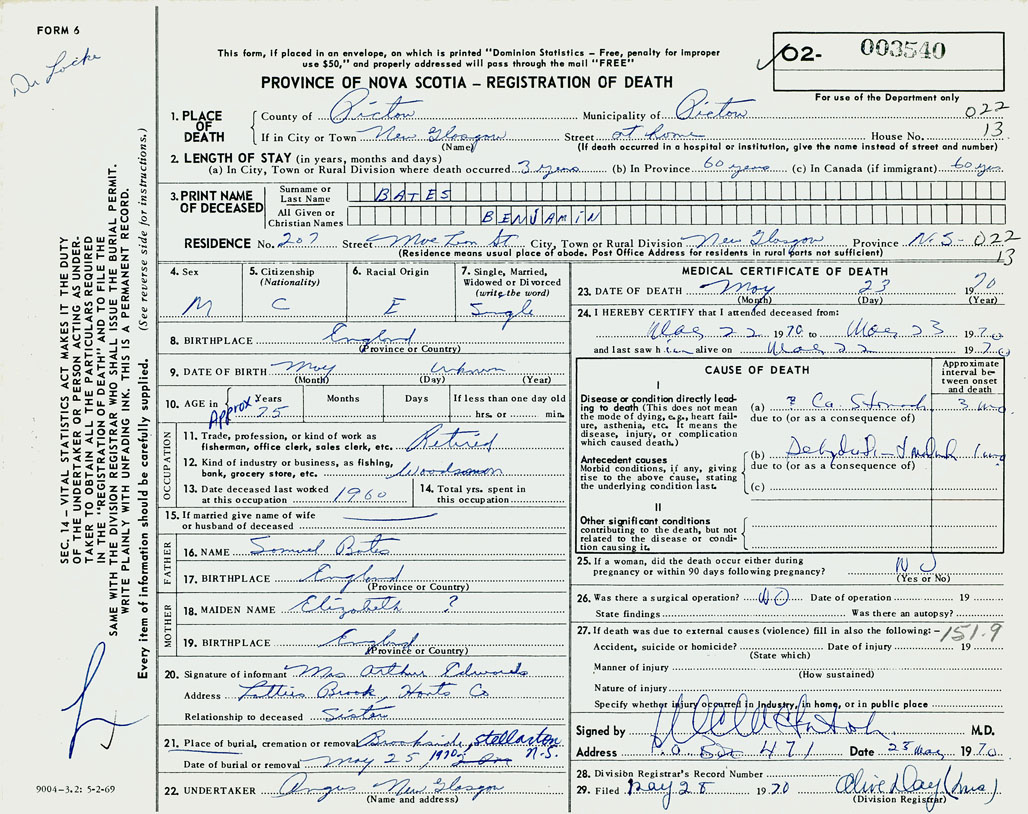 FORM 6
Dr Locke
This form, if placed in an envelope, on which is printed "Dominion Statistics – Free, penalty for improper
use $50," and properly addressed will pass through the mail "FREE"
PROVINCE OF NOVA SCOTIA – REGISTRATION OF DEATH
02- 003540
For use of the Department only
1. PLACE OF DEATH
County of Pictou Municipality of Pictou 022
If in City or Town New Glasgow Street at home House No. 13
(Name) (If death occurred in a hospital or institution, give the name instead of street and number)
2. LENGTH OF STAY (in years, months and days)
(a) In City, Town or Rural Division where death occurred 3 years (b) In Province 60 years (c) In Canada (if immigrant) 60 yrs
3. PRINT NAME OF DECEASED
Surname or Last Name BATES
All Given or Christian Names BENJAMIN
RESIDENCE No. 207 Street St City, Town or Rural Division New Glasgow Province N.S- 022
(Residence means usual place of abode. Post Office Address for residents in rural parts not sufficient) 13
4. Sex
M
5. Citizenship
(Nationality)
C
6. Racial Origin
E
7. Single, Married,
Widowed or Divorced
(write the word)
Single
8. BIRTHPLACE England
(Province or Country)
9. DATE OF BIRTH May unknown
(Month) (Day) (Year)
10. AGE in Years Months Days If less than one day old
Approx 75 hrs. or min.
OCCUPATION
11. Trade, profession, or kind of work as
fisherman, office clerk, sales clerk, etc. Retired
12. Kind of industry or business, as fishing,
bank, grocery store, etc. Woodsman
13. Date deceased last worked
at this occupation 1960
14. Total yrs. spent in
this occupation
15. If married give name of wife
or husband of deceased
FATHER
16. NAME Samuel Bates
17. BIRTHPLACE England
(Province or Country)
MOTHER
18. MAIDEN NAME Elizabeth ?
19. BIRTHPLACE England
(Province or Country)
20. Signature of informant Mrs Arthur Edwards
Address Latties Brook, Hants Co
Relationship to deceased Sister
21. Place of burial, cremation or removal Brookside, Stellarton
N.S.
Date of burial or removal May 25 1970
22. UNDERTAKER Angus New Glasgow
(Name and address)
MEDICAL CERTIFICATE OF DEATH
23. DATE OF DEATH May 23 1970
(Month) (Day) (Year)
24. I HEREBY CERTIFY that I attended deceased from:
May 22 1970 to May 23 1970
and last saw him alive on May 22 1970
CAUSE OF DEATH
Approximate
interval be-
tween onset
and death
I
Disease or condition directly lead-
ing to death (This does not mean
the mode of dying, e.g., heart fail-
ure, asthenia, etc. It means the
disease, injury, or complication
which caused death.)
(a) ? Ca. Stomach
due to (or as a consequence of)
Antecedent causes
Morbid conditions, if any, giving
rise to the above cause, stating
the underlying condition last.
(b)
due to (or as a consequence of)
(c)
II
Other significant conditions
contributing to the death, but not
related to the disease or condi-
tion causing it.
25. If a woman, did the death occur either during
pregnancy or within 90 days following pregnancy? NO
(Yes or No)
26. Was there a surgical operation? NO Date of operation 19
State findings Was there an autopsy?
27. If death was due to external causes (violence) fill in also the following: –151.9
Accident, suicide or homicide? Date of injury 19
(State which)
Manner of injury
(How sustained)
Nature of injury
Specify whether injury occurred in industry, in home, or in public place
Signed by M.D.
Address P.O. Box 471 Date 25 May 1970
28. Division Registrar's Record Number
29. Filed May 28 1970 Olive Day (Mrs)
(Division Registrar)
SEC. 14 – VITAL STATISTICS ACT MAKES IT THE DUTY
OF THE UNDERTAKER OR PERSON ACTING AS UNDER-
TAKER TO OBTAIN ALL THE PARTICULARS REQUIRED
IN THE "REGISTRATION OF DEATH" AND TO FILE THE
SAME WITH THE DIVISION REGISTRAR WHO SHALL ISSUE THE BURIAL PERMIT.
WRITE PLAINLY WITH UNFADING INK. THIS IS A PERMANENT RECORD.
Every item of information should be carefully supplied. (See reverse side for instructions.)
9004-3.2: 5-2-69